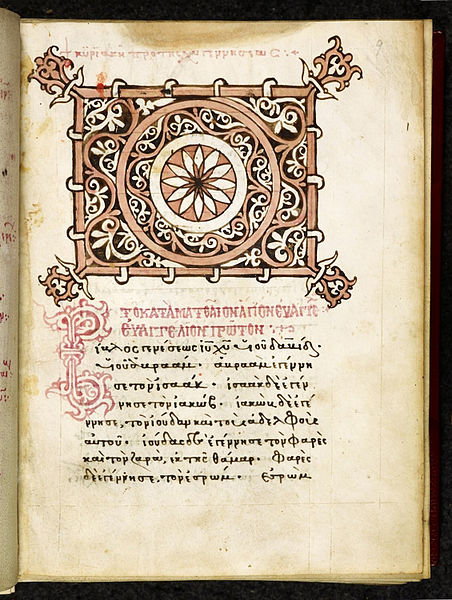 κυριακῆ προ της χυ γεννησεως
ΤΟ ΚΑΤΑ ΜΑΤΘΑΙΟΝ ΑΓΙΟΝ ΕΥΑΓΓΕ
ΕΥΑΓΓΕΛΙΟΝ ΠΡΩΤΟΝ
Βίβλος γενέσεως ἰυ χυ υἱοῦ δαυὶδ
υἱοῦ ἀβραάμ. ἀβραὰμ ἐγέννη
σε τὸν ἰσαάκ. ἰσαὰκ δὲ ἐγέν
νησε τὸν ἰακώβ. ἰακὼβ δὲ ἐγέ
ννησε, τὸν ἰούδαν καὶ τοὺς ἀδελφοὺς
αὐτοῦ. ἰούδας δὲ ἐγέννησε τὸν φαρὲς
καὶ τὸν ζαρὰ, ἐκ τῆς θάμαρ. Φαρὲς
δὲ ἐγέννησε, τὸν ἐσρώμ. Ἐσρὼμ
1